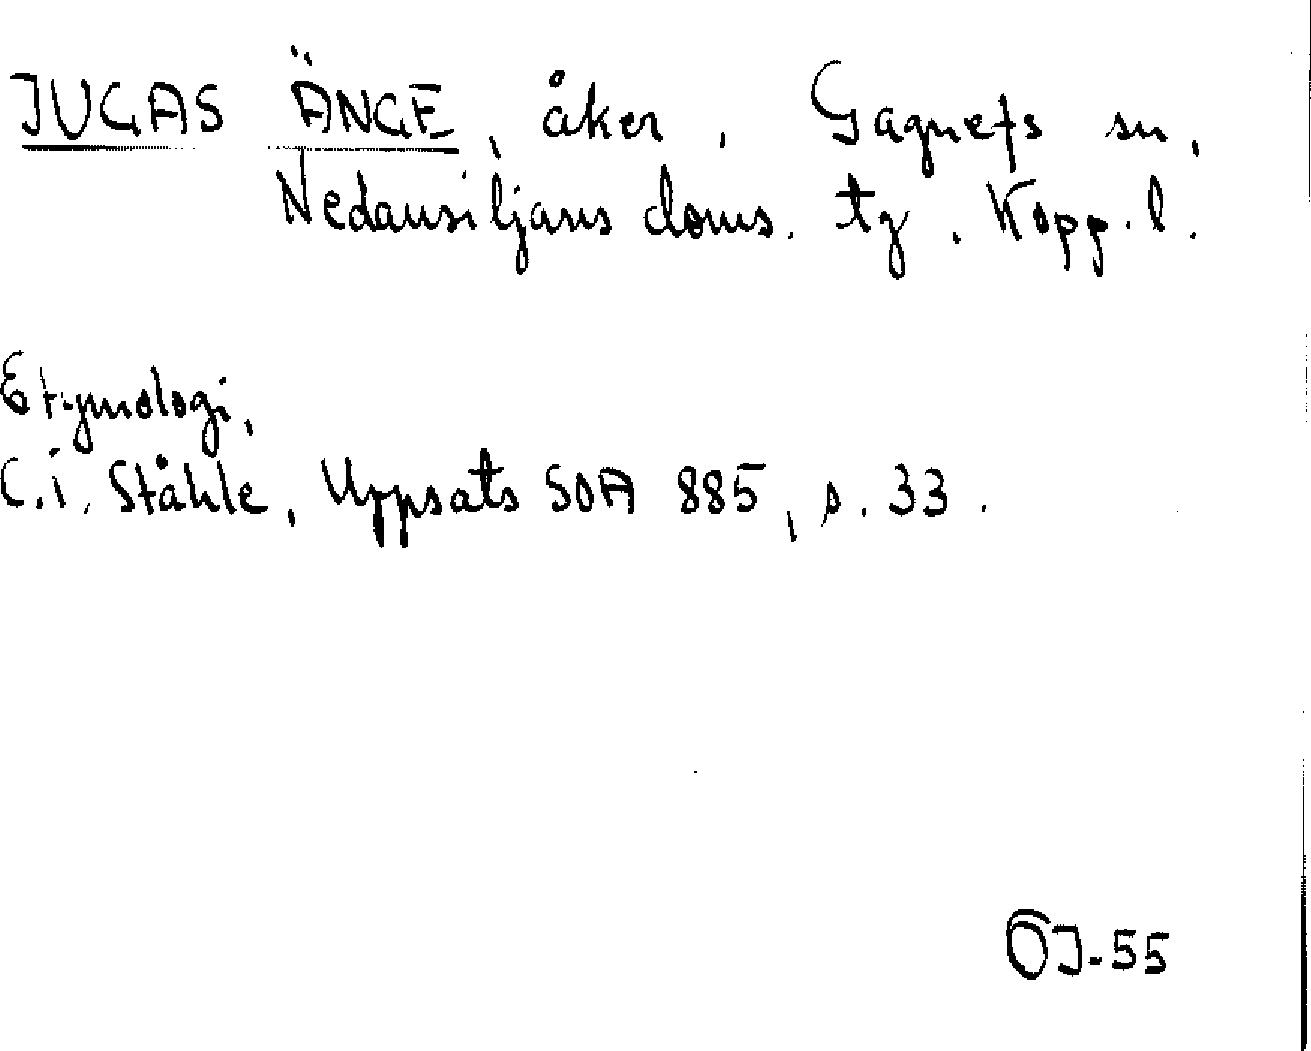 JUGAS ÄNGE, åker, Gagnefs sn,
Nedansiljans doms. tg. Kopp. l.
Etymologi,
C. I. Ståhle, Uppsats SOA 885, s. 33.
ÖJ-55